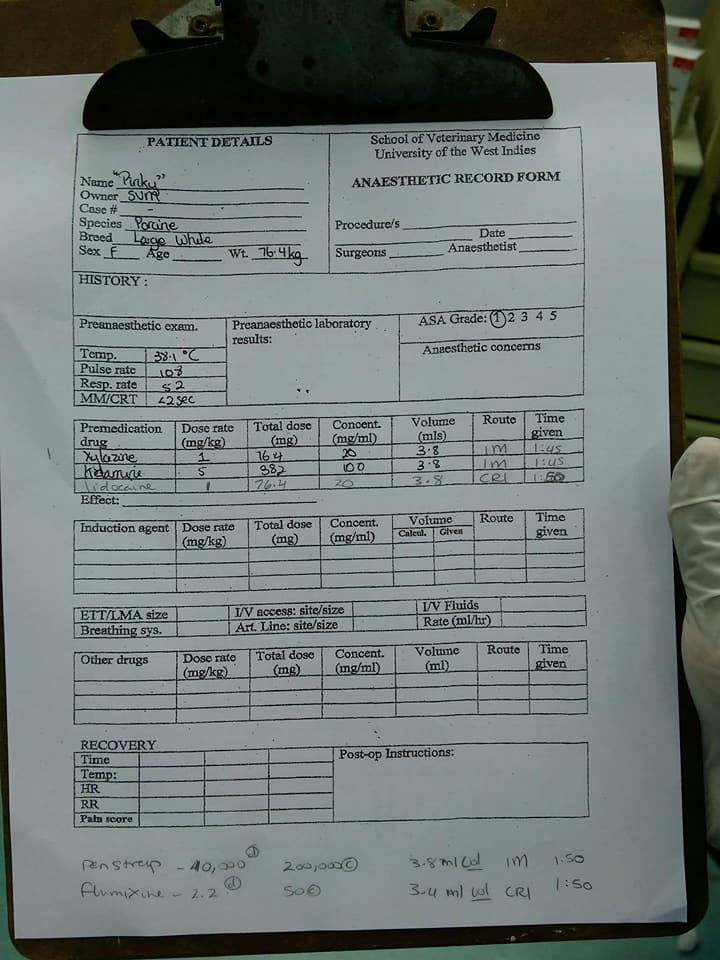 PATIENT DETAILS
Name "Pinky"
Owner SVM
Case # -
Species Porcine
Breed Large White
Sex F Age Wt. 76.4kg
School of Veterinary Medicine
University of the West Indies
ANAESTHETIC RECORD FORM
Procedure/s
Date
Surgeons Anaesthetist
HISTORY :
Preanaesthetic exam.
Temp. 38.1 °C
Pulse rate 108
Resp. rate 52
MM/CRT <2sec
Preanaesthetic laboratory
results:
ASA Grade: 1 2 3 4 5
Anaesthetic concerns
Premedication drug Dose rate (mg/kg) Total dose (mg) Concent. (mg/ml) Volume (mls) Route Time given
Xylazine 1 76.4 20 3.8 IM 1:45
Ketamine 5 382 100 3.8 IM 1:45
lidocaine 1 76.4 20 3.8 CRI 1:50
Effect:
Induction agent Dose rate (mg/kg) Total dose (mg) Concent. (mg/ml) Volume Calcul. Given Route Time given
ETT/LMA size I/V access: site/size I/V Fluids
Breathing sys. Art. Line: site/size Rate (ml/hr)
Other drugs Dose rate (mg/kg) Total dose (mg) Concent. (mg/ml) Volume (ml) Route Time given
RECOVERY
Time
Temp:
HR
RR
Pain score
Post-op Instructions:
Penstrep - 10,000 d 200,000 c 3.8ml IM 1:50
flumixine - 2.2 d 50 c 3.4 ml vol CRI 1:50